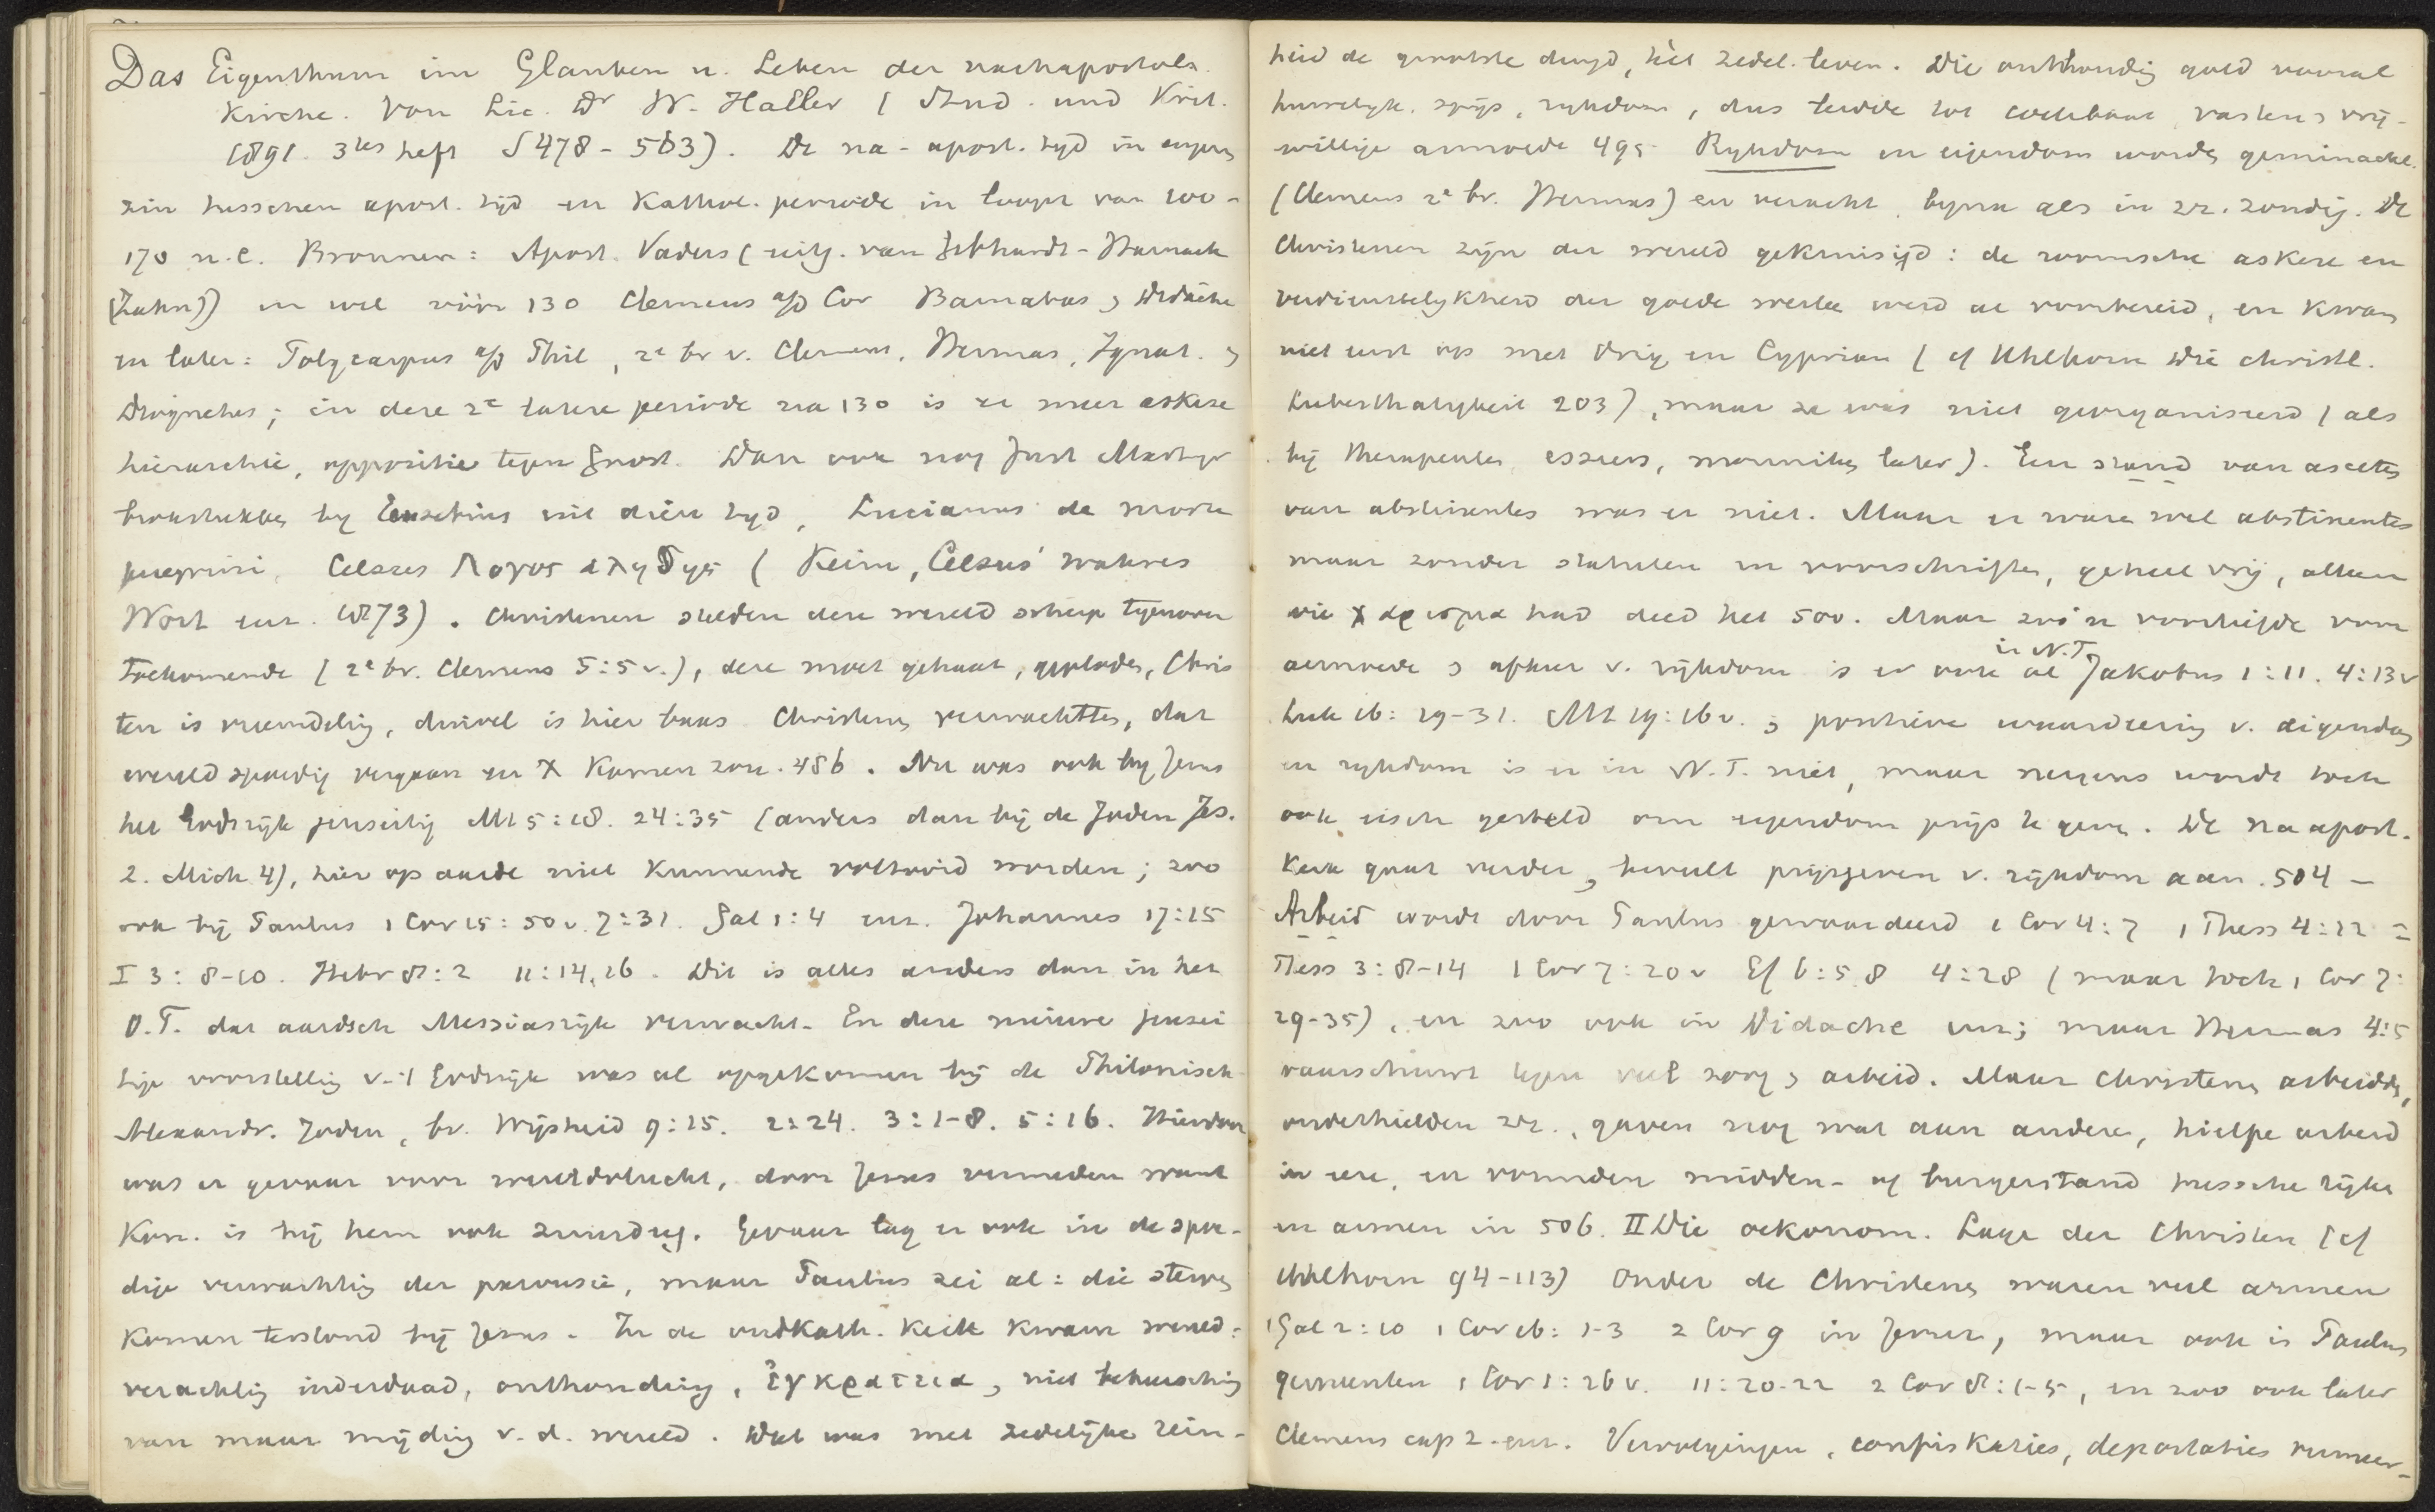 Das Eigenthum im Glauben u. Leben der nachapostol.
Kirche. Von Lic. Dr W. Haller (Stud. und Krit.
1891. 3tes heft S 478-563). De na-apost. tyd in engen
zin tusschen apost. tijd en Kathol. periode in loopt van 100-
170 n.C. Bronnen: Apost. Vaders (uitg. van Gebhardt-Harnack
(Zahn)) en wel vóór 130 Clemens a/d Cor Barnabas, Didache
en later: Polycarpus a/d Phil, 2e br v. Clemens, Hermas, Ignat. ,
Diognetus; in deze 2e latere periode na 130 is er meer askese
hierarchie, oppositie tegen gnost. Dan ook nog Just Martyr
brokstukken by Eusebius uit dien tyd, Lucianus de morte
peregrini, Celsus Λογος αληθης (Keim, Celsus' wahres
Wort enz. 1873). Christenen stelden deze wereld scherp tegenover
toekomende (2e br. Clemens 5:5v.), deze moet gehaat, geplaagd, Chris
ten is vreemdeling, duivel is hier baas Christenen verwachtten, dat
wereld spoedig vergaan en X komen zou. 486. Nu was ook by Jezus
het Godsrijk jenseitig Mt 5:18. 24:35 (anders dan bij de Joden Jes.
2. Mich 4), hier op aarde niet kunnende voltooid worden; zoo
ook bij Paulus 1 Cor 15:50v. 7:31. Gal 1:4 enz. Johannes 17:15
I 3:8-10. Hebr 8:2 11:14,16. Dit is alles anders dan in het
O.T. dat aardsch Messiasrijk verwacht. En deze nieuwe jensei
tige voorstelling v. 't Godsrijk was al opgekomen bij de Philonisch-
Alexandr. Joden, br. Wijsheid 9:15. 2:24. 3:1-8. 5:16. Hierdoor
was er gevaar voor wereldvlucht, door Jezus vermeden want
Kon. is bij hem ook zuurdeeg. Gevaar lag er ook in de spoe-
dige verwachting der parousie, maar Paulus zei al: die sterven
komen terstond bij Jezus. In de oudkath. Kerk kwam wereld-
verachting inderdaad, onthouding, ἐγκρατεια, niet beheersching
van maar mijding v. d. wereld. Dat was met zedelijke rein-
heid de grootste deugd, hèt zedel. leven. Die onthouding gold vooral
huwelyk, spijs, rykdom, dus leidde tot coelibaat, vasten, vrij-
willige armoede 495 Rykdom en eigendom wordt geminacht
(Clemens 2e br. Hermas) en veracht, byna als in zz. zondig. De
Christenen zijn der wereld gekruisigd: de roomsche askese en
verdienstelykheid der goede werken werd al voorbereid, en kwam
niet eerst op met Orig en Cyprian (cf Uhlhorn Die christl.
Liebesthätigkeit 203), maar ze was niet georganiseerd (als
bij therapeuten, esseers, monniken later). Een stand van asceten
van abstinentes was er niet. Maar er waren wel abstinentes
maar zonder statuten en voorschriften, geheel vrij, alleen
wie χαρισμα had deed het 500. Maar zoo'n voorliefde voor
armoede, afkeer v. rijkdom is er ook al in N.T. Jakobus 1:11. 4:13v
Luk 16:19-31. Mt 19:16v. , positieve waardeering v. eigendom
en rykdom is er in N.T. niet, maar nergens wordt toch
ook eisch gesteld om eigendom prijs te geven. De naapost.
Kerk gaat verder, beveelt prijsgeven v. rijkdom aan. 504 -
Arbeid wordt door Paulus gewaardeerd 1 Cor 4:7 1 Thess 4:11 2
Thess 3:8-14 1 Cor 7:20v Ef 6:5.8 4:28 (maar toch 1 Cor 7:
29-35), en zoo ook in Didache enz; maar Hermas 4:5
waarschuwt tegen veel zorg, arbeid. Maar Christenen arbeidden,
onderhielden zz., gaven nog wat aan anderen, hielpen arbeid
in eere, en vormden midden- of burgerstand tusschen rijken
en armen in 506. II Die oekonom. Lage der Christen (cf
Uhlhorn 94-113) Onder de Christenen waren veel armen
(Gal 2:10 1 Cor 16:1-3 2 Cor 9 in Jeruz., maar ook in Paulus
gemeenten 1 Cor 1:26v. 11:20-22 2 Cor 8:1-5, en zoo ook later
Clemens cap 2. enz. Vervolgingen, confiskaties, deportaties vermeer-